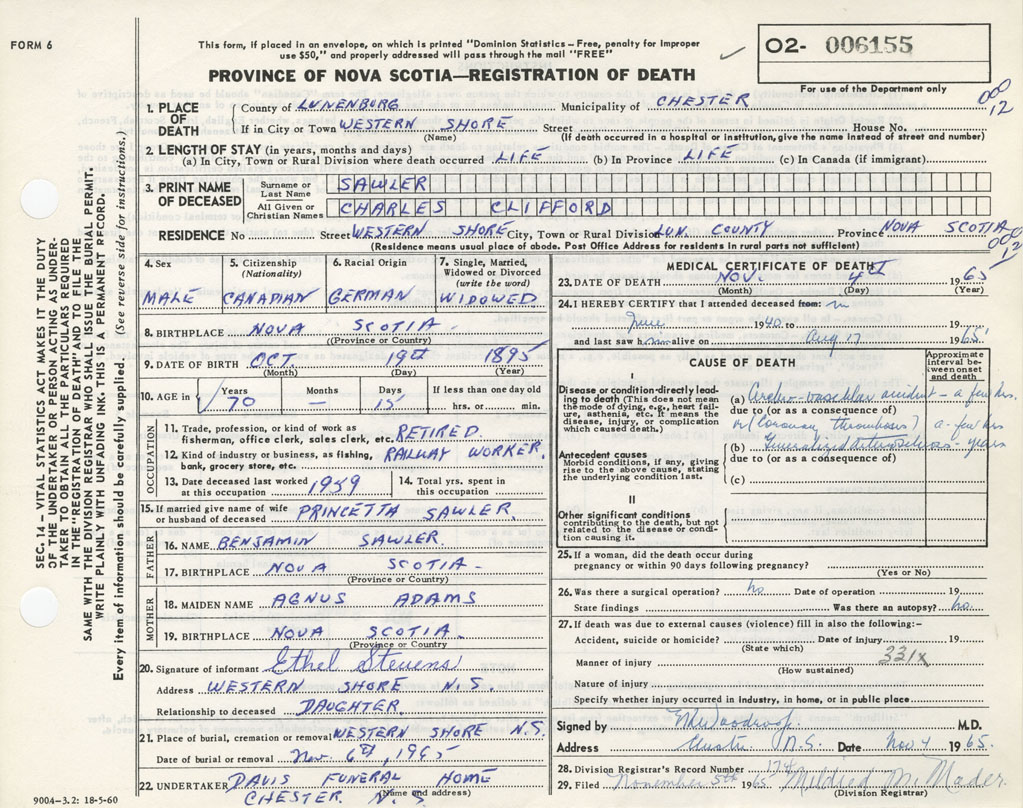 FORM 6
This form, if placed in an envelope, on which is printed "Dominion Statistics – Free, penalty for improper
use $50," and properly addressed will pass through the mail "FREE"
O2- 006155
For use of the Department only
PROVINCE OF NOVA SCOTIA—REGISTRATION OF DEATH
000
12
1. PLACE OF DEATH County of LUNENBURG Municipality of CHESTER
If in City or Town WESTERN SHORE Street House No.
(Name) (If death occurred in a hospital or institution, give the name instead of street and number)
2. LENGTH OF STAY (in years, months and days)
(a) In City, Town or Rural Division where death occurred LIFE (b) In Province LIFE (c) In Canada (if immigrant)
3. PRINT NAME OF DECEASED Surname or Last Name SAWLER
All Given or Christian Names CHARLES CLIFFORD
RESIDENCE No Street WESTERN SHORE City, Town or Rural Division LUN. COUNTY Province NOVA SCOTIA
(Residence means usual place of abode. Post Office Address for residents in rural parts not sufficient)
000
12
4. Sex 5. Citizenship (Nationality) 6. Racial Origin 7. Single, Married, Widowed or Divorced (write the word)
MALE CANADIAN GERMAN WIDOWED
8. BIRTHPLACE NOVA SCOTIA
(Province or Country)
9. DATE OF BIRTH OCT. 19th 1895
(Month) (Day) (Year)
10. AGE in Years Months Days If less than one day old
70 – 15 hrs. or min.
OCCUPATION
11. Trade, profession, or kind of work as
fisherman, office clerk, sales clerk, etc. RETIRED
12. Kind of industry or business, as fishing,
bank, grocery store, etc. RAILWAY WORKER.
13. Date deceased last worked at this occupation 1959 14. Total yrs. spent in this occupation
15. If married give name of wife or husband of deceased PRINCETTA SAWLER.
FATHER
16. NAME BENJAMIN SAWLER.
17. BIRTHPLACE NOVA SCOTIA
(Province or Country)
MOTHER
18. MAIDEN NAME AGNUS ADAMS
19. BIRTHPLACE NOVA SCOTIA
(Province or Country)
20. Signature of informant Ethel Stevens
Address WESTERN SHORE N.S.
Relationship to deceased DAUGHTER.
21. Place of burial, cremation or removal WESTERN SHORE N.S.
Date of burial or removal Nov. 6th, 1965
22. UNDERTAKER DAVIS FUNERAL HOME
CHESTER. N.S.
(Name and address)
9004-3.2: 18-5-60
MEDICAL CERTIFICATE OF DEATH
23. DATE OF DEATH NOV. 4th 1965
(Month) (Day) (Year)
24. I HEREBY CERTIFY that I attended deceased from: in
June 1940 to 19
and last saw him alive on Aug 17 1965
CAUSE OF DEATH
Approximate interval between onset and death
I
Disease or condition directly leading to death (This does not mean the mode of dying, e.g., heart failure, asthenia, etc. It means the disease, injury, or complication which caused death.)
(a) Cerebro-vascular accident – a few hrs.
due to (or as a consequence of)
or (Coronary thrombosis?) a few hrs
Antecedent causes
Morbid conditions, if any, giving rise to the above cause, stating the underlying condition last.
(b) Generalized atherosclerosis – years
due to (or as a consequence of)
(c)
II
Other significant conditions
contributing to the death, but not related to the disease or condition causing it.
25. If a woman, did the death occur during
pregnancy or within 90 days following pregnancy?
(Yes or No)
26. Was there a surgical operation? no Date of operation 19
State findings Was there an autopsy? no.
27. If death was due to external causes (violence) fill in also the following:–
Accident, suicide or homicide? Date of injury 19
(State which)
331X
Manner of injury
(How sustained)
Nature of injury
Specify whether injury occurred in industry, in home, or in public place
Signed by M.D.
Address Chester N.S. Date Nov 4 1965.
28. Division Registrar's Record Number 174
29. Filed November 5th 1965 Mildred M. Mader.
(Division Registrar)
SEC. 14 – VITAL STATISTICS ACT MAKES IT THE DUTY
OF THE UNDERTAKER OR PERSON ACTING AS UNDER-
TAKER TO OBTAIN ALL THE PARTICULARS REQUIRED
IN THE "REGISTRATION OF DEATH" AND TO FILE THE
SAME WITH THE DIVISION REGISTRAR WHO SHALL ISSUE THE BURIAL PERMIT.
WRITE PLAINLY WITH UNFADING INK. THIS IS A PERMANENT RECORD.
Every item of information should be carefully supplied. (See reverse side for instructions.)